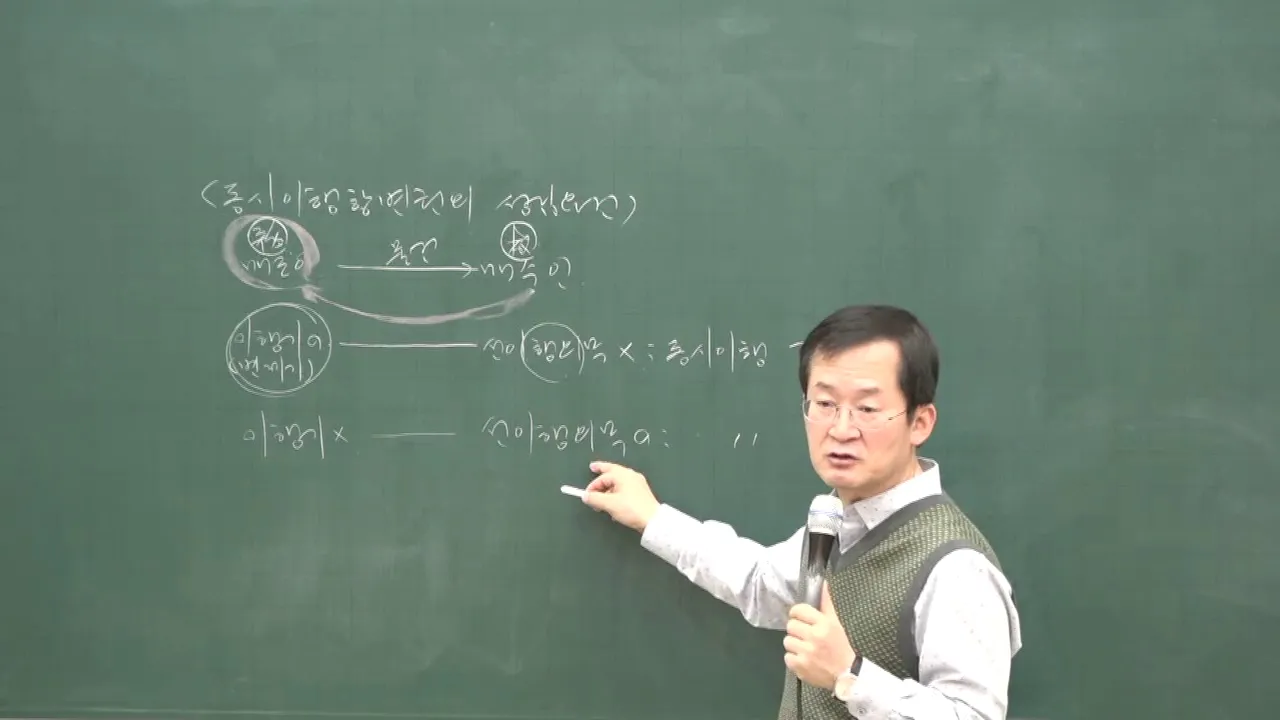 <동시이행항변권의 성립요건>
매도인 → 매수인
이행기 a — 선이행의무 x : 동시이행
(변제기)
이행기 x — 선이행의무 a : 〃